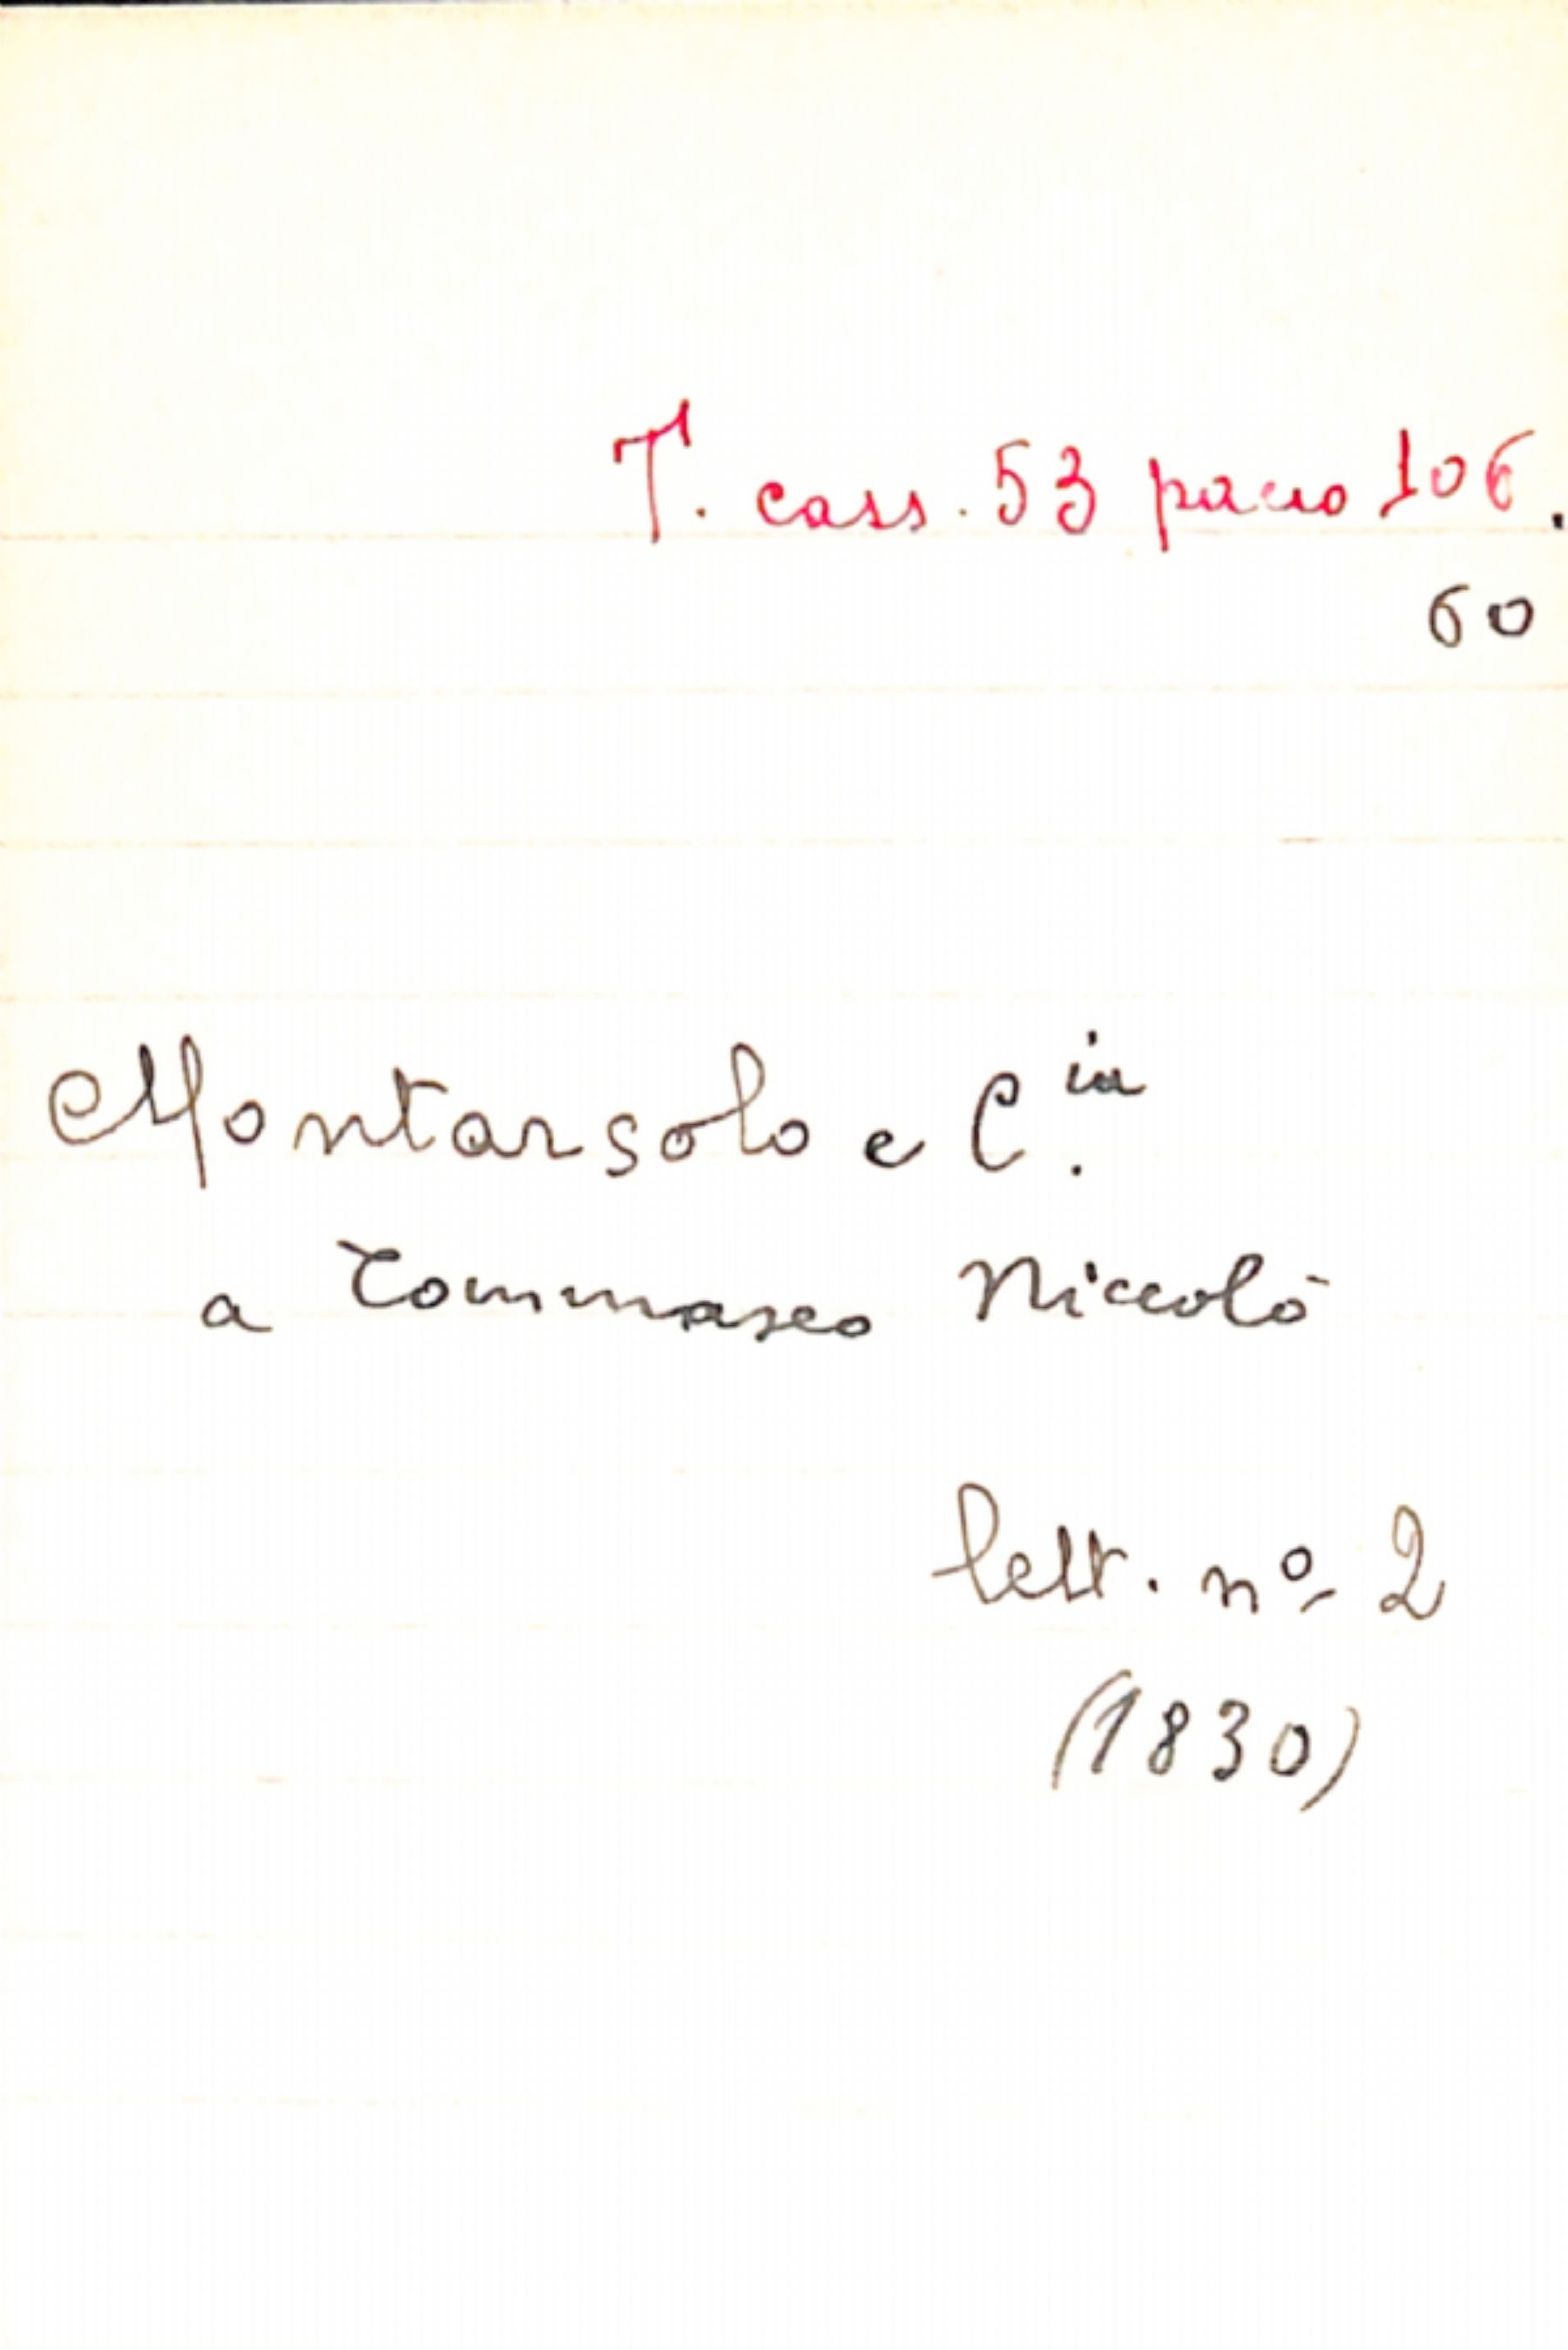 T. cass. 53 pacco 106.
60
Montarsolo e C.ia
a Tommaseo Niccolò
lett. nº 2
(1830)